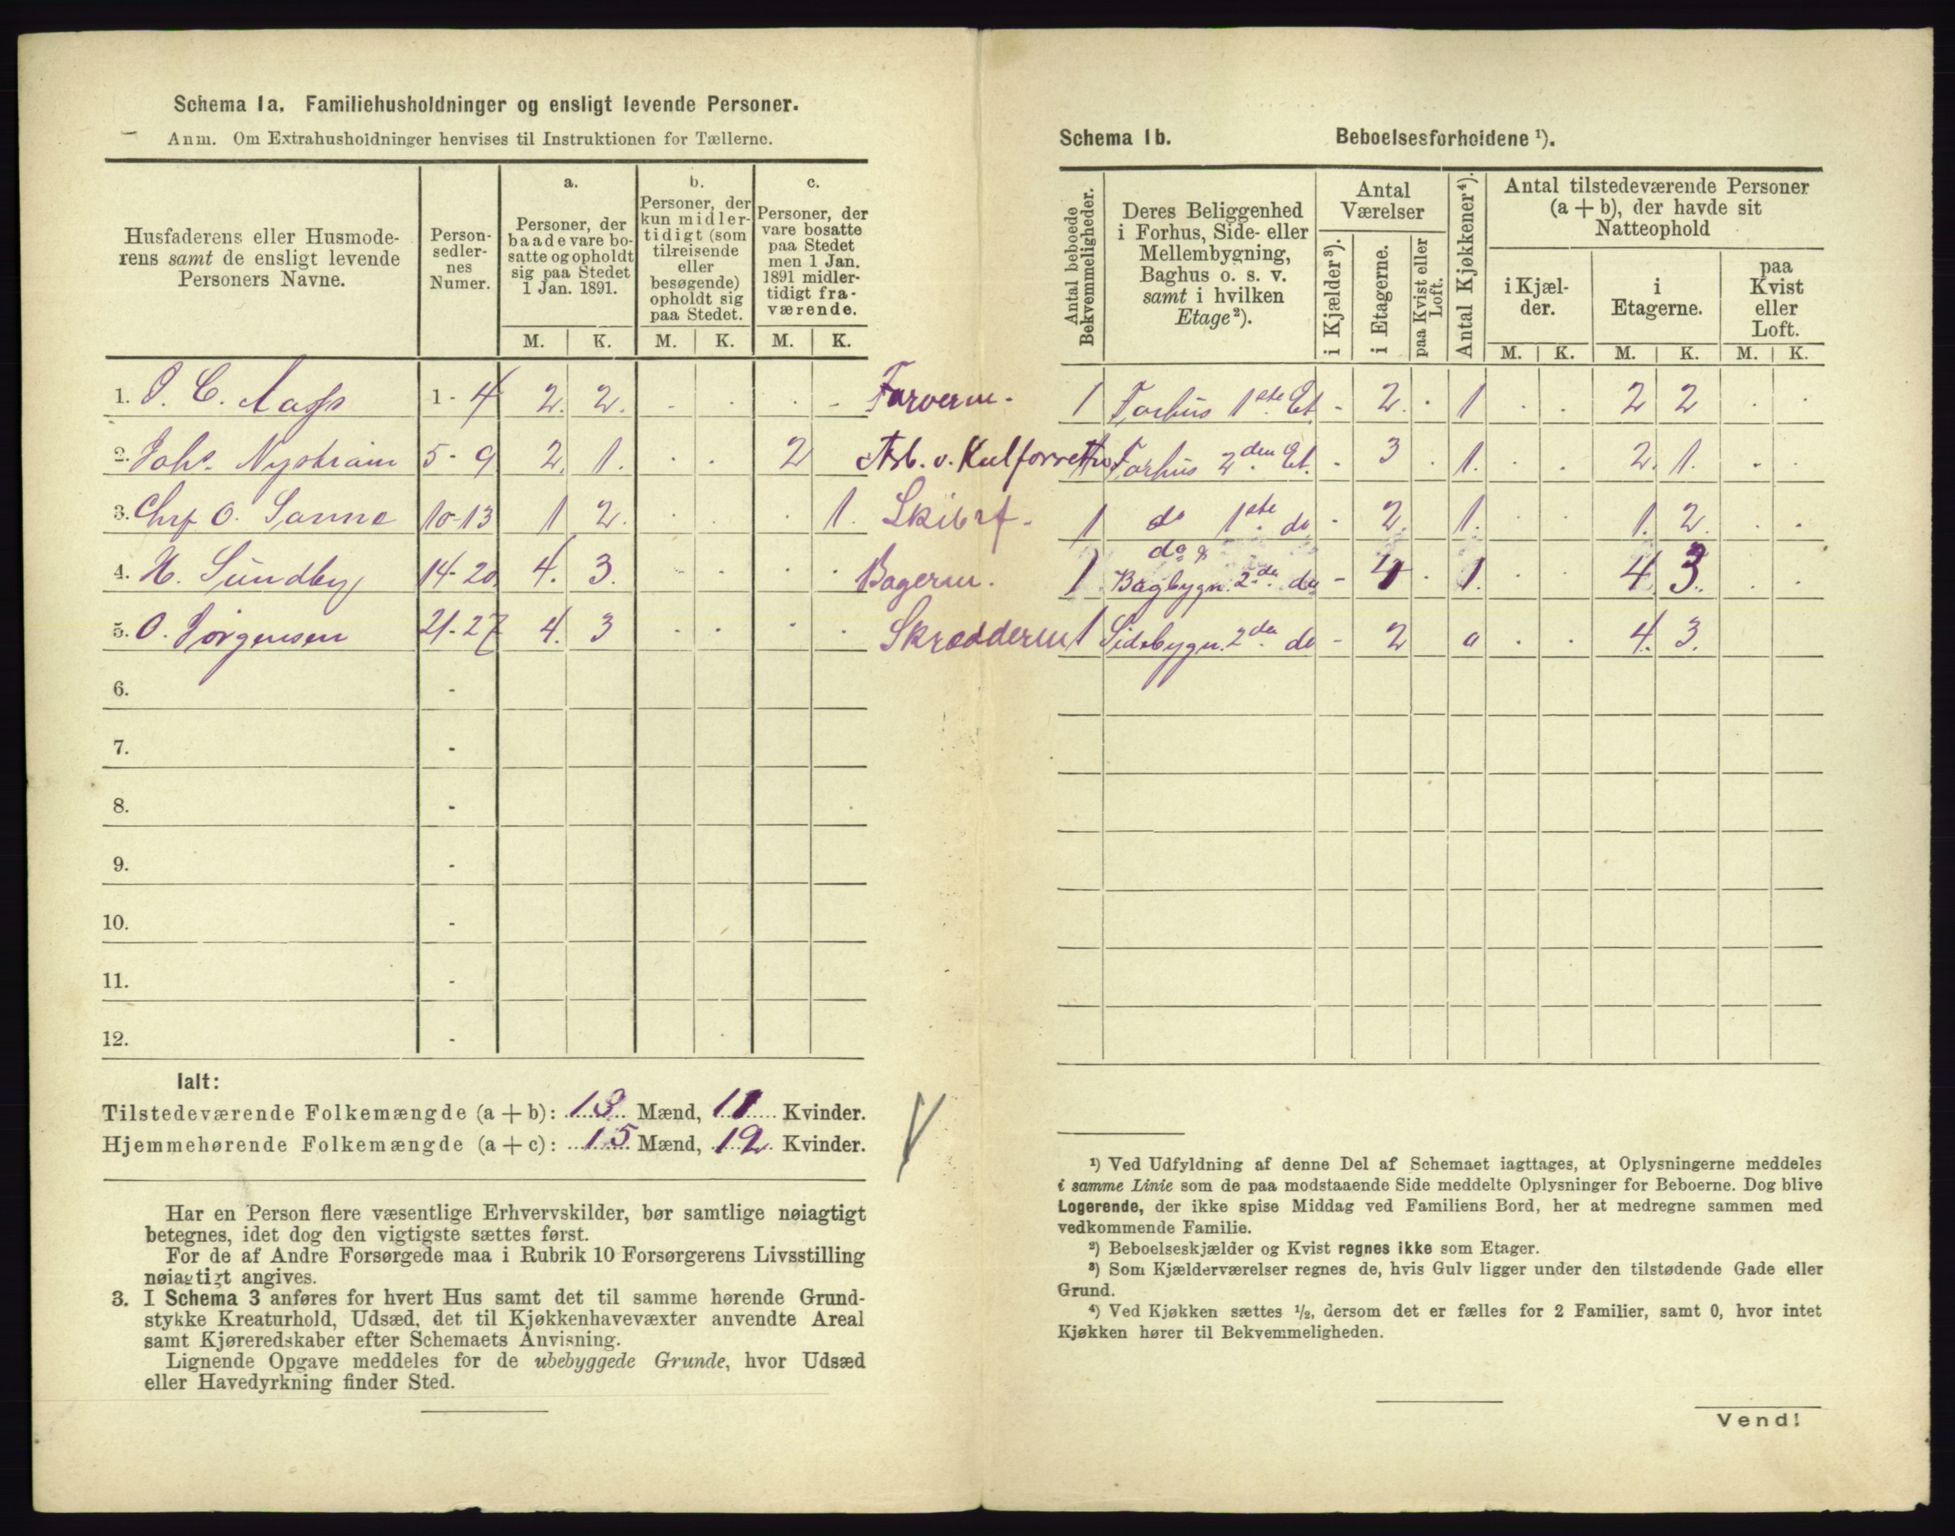 Schema 1a. Familiehusholdninger og ensligt levende Personer.
Anm. Om Extrahusholdninger henvises til Instruktionen for Tællerne.
Husfaderens eller Husmoderens samt de ensligt levende Personers Navne.
Personsedlernes Numer.
a. Personer, der baade vare bosatte og opholdt sig paa Stedet 1 Jan. 1891.
b. Personer, der kun midlertidigt (som tilreisende eller besøgende) opholdt sig paa Stedet.
c. Personer, der vare bosatte paa Stedet men 1 Jan. 1891 midlertidigt fraværende.
M. K. M. K. M. K.
1. O. C. Aass 1 - 4 2. 2. - . . - Farverm.
2. Johs. Nystrøm 5 - 9 2. 1. . . 2 Arb. v. Kulforretn
3. Chrf O. Sanne 10-13 1 2. . . . 1. Skibsf.
4. H. Sundby 14-20 4. 3. - . . . Bagerm.
5. O. Jörgensen 21-27 4. 3 . . . . Skrædderm
6. -
7. -
8. -
9. -
10. -
11. -
12. -
Ialt:
Tilstedeværende Folkemængde (a + b): 13 Mænd, 11 Kvinder.
Hjemmehørende Folkemængde (a + c): 15 Mænd, 12 Kvinder.
Har en Person flere væsentlige Erhvervskilder, bør samtlige nøiagtigt
betegnes, idet dog den vigtigste sættes først.
For de af Andre Forsørgede maa i Rubrik 10 Forsørgerens Livsstilling
nøiagtigt angives.
3. I Schema 3 anføres for hvert Hus samt det til samme hørende Grund-
stykke Kreaturhold, Udsæd, det til Kjøkkenhavevæxter anvendte Areal
samt Kjøreredskaber efter Schemaets Anvisning.
Lignende Opgave meddeles for de ubebyggede Grunde, hvor Udsæd
eller Havedyrkning finder Sted.
Schema 1b. Beboelsesforholdene ¹).
Antal beboede Bekvemmeligheder.
Deres Beliggenhed i Forhus, Side- eller Mellembygning, Baghus o. s. v. samt i hvilken Etage²).
Antal Værelser
i Kjælder³).
i Etagerne.
paa Kvist eller Loft.
Antal Kjøkkener⁴).
Antal tilstedeværende Personer (a + b), der havde sit Natteophold
i Kjælder.
i Etagerne.
paa Kvist eller Loft.
M. K. M. K. M. K.
1 Forhus 1ste Et - 2. . 1 . . 2 2 . .
1 Forhus 2den Et. - 3 . 1. . . 2. 1. . .
1 do 1ste do - 2. . 1. . . 1. 2. . .
1 do & Bagbygn. 2de do - 4 . 1. . . 4. 3.
1 Sidebygn. 2de do - 2 0 . . 4. 3.
¹) Ved Udfyldning af denne Del af Schemaet iagttages, at Oplysningerne meddeles
i samme Linie som de paa modstaaende Side meddelte Oplysninger for Beboerne. Dog blive
Logerende, der ikke spise Middag ved Familiens Bord, her at medregne sammen med
vedkommende Familie.
²) Beboelseskjælder og Kvist regnes ikke som Etager.
³) Som Kjælderværelser regnes de, hvis Gulv ligger under den tilstødende Gade eller
Grund.
⁴) Ved Kjøkken sættes ½, dersom det er fælles for 2 Familier, samt 0, hvor intet
Kjøkken hører til Bekvemmeligheden.
Vend!